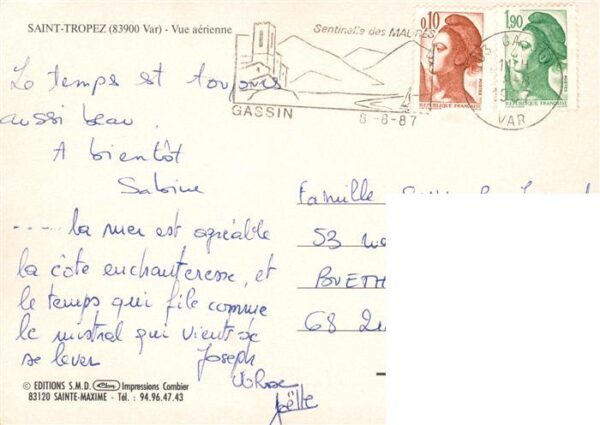 SAINT-TROPEZ (83900 Var) - Vue aérienne
Sentinelle des MAURES
GASSIN
8-87
0,10
1,90
REPUBLIQUE FRANÇAISE
REPUBLIQUE FRANÇAISE
VAR
Le temps est toujours
aussi beau.
A bientôt
Sabine
.... la mer est agréable
la côte enchanteresse, et
le temps qui file comme
le mistral qui vient de
se lever
Joseph
Joëlle
Famille
53
68
© EDITIONS S.M.D. Impressions Combier
83120 SAINTE-MAXIME - Tél. : 94.96.47.43